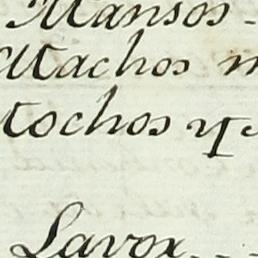 Mansos -
Machos m
tochos y
Lavor - -